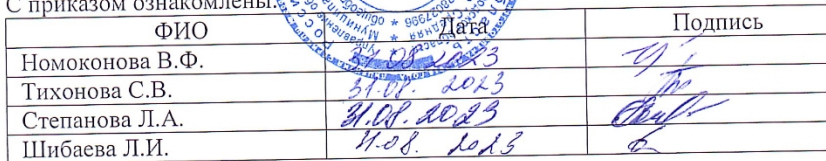 С приказом ознакомлены:
ФИО Дата Подпись
Номоконова В.Ф. 31.08.2023
Тихонова С.В. 31.08. 2023
Степанова Л.А. 31.08. 2023
Шибаева Л.И. 31.08. 2023